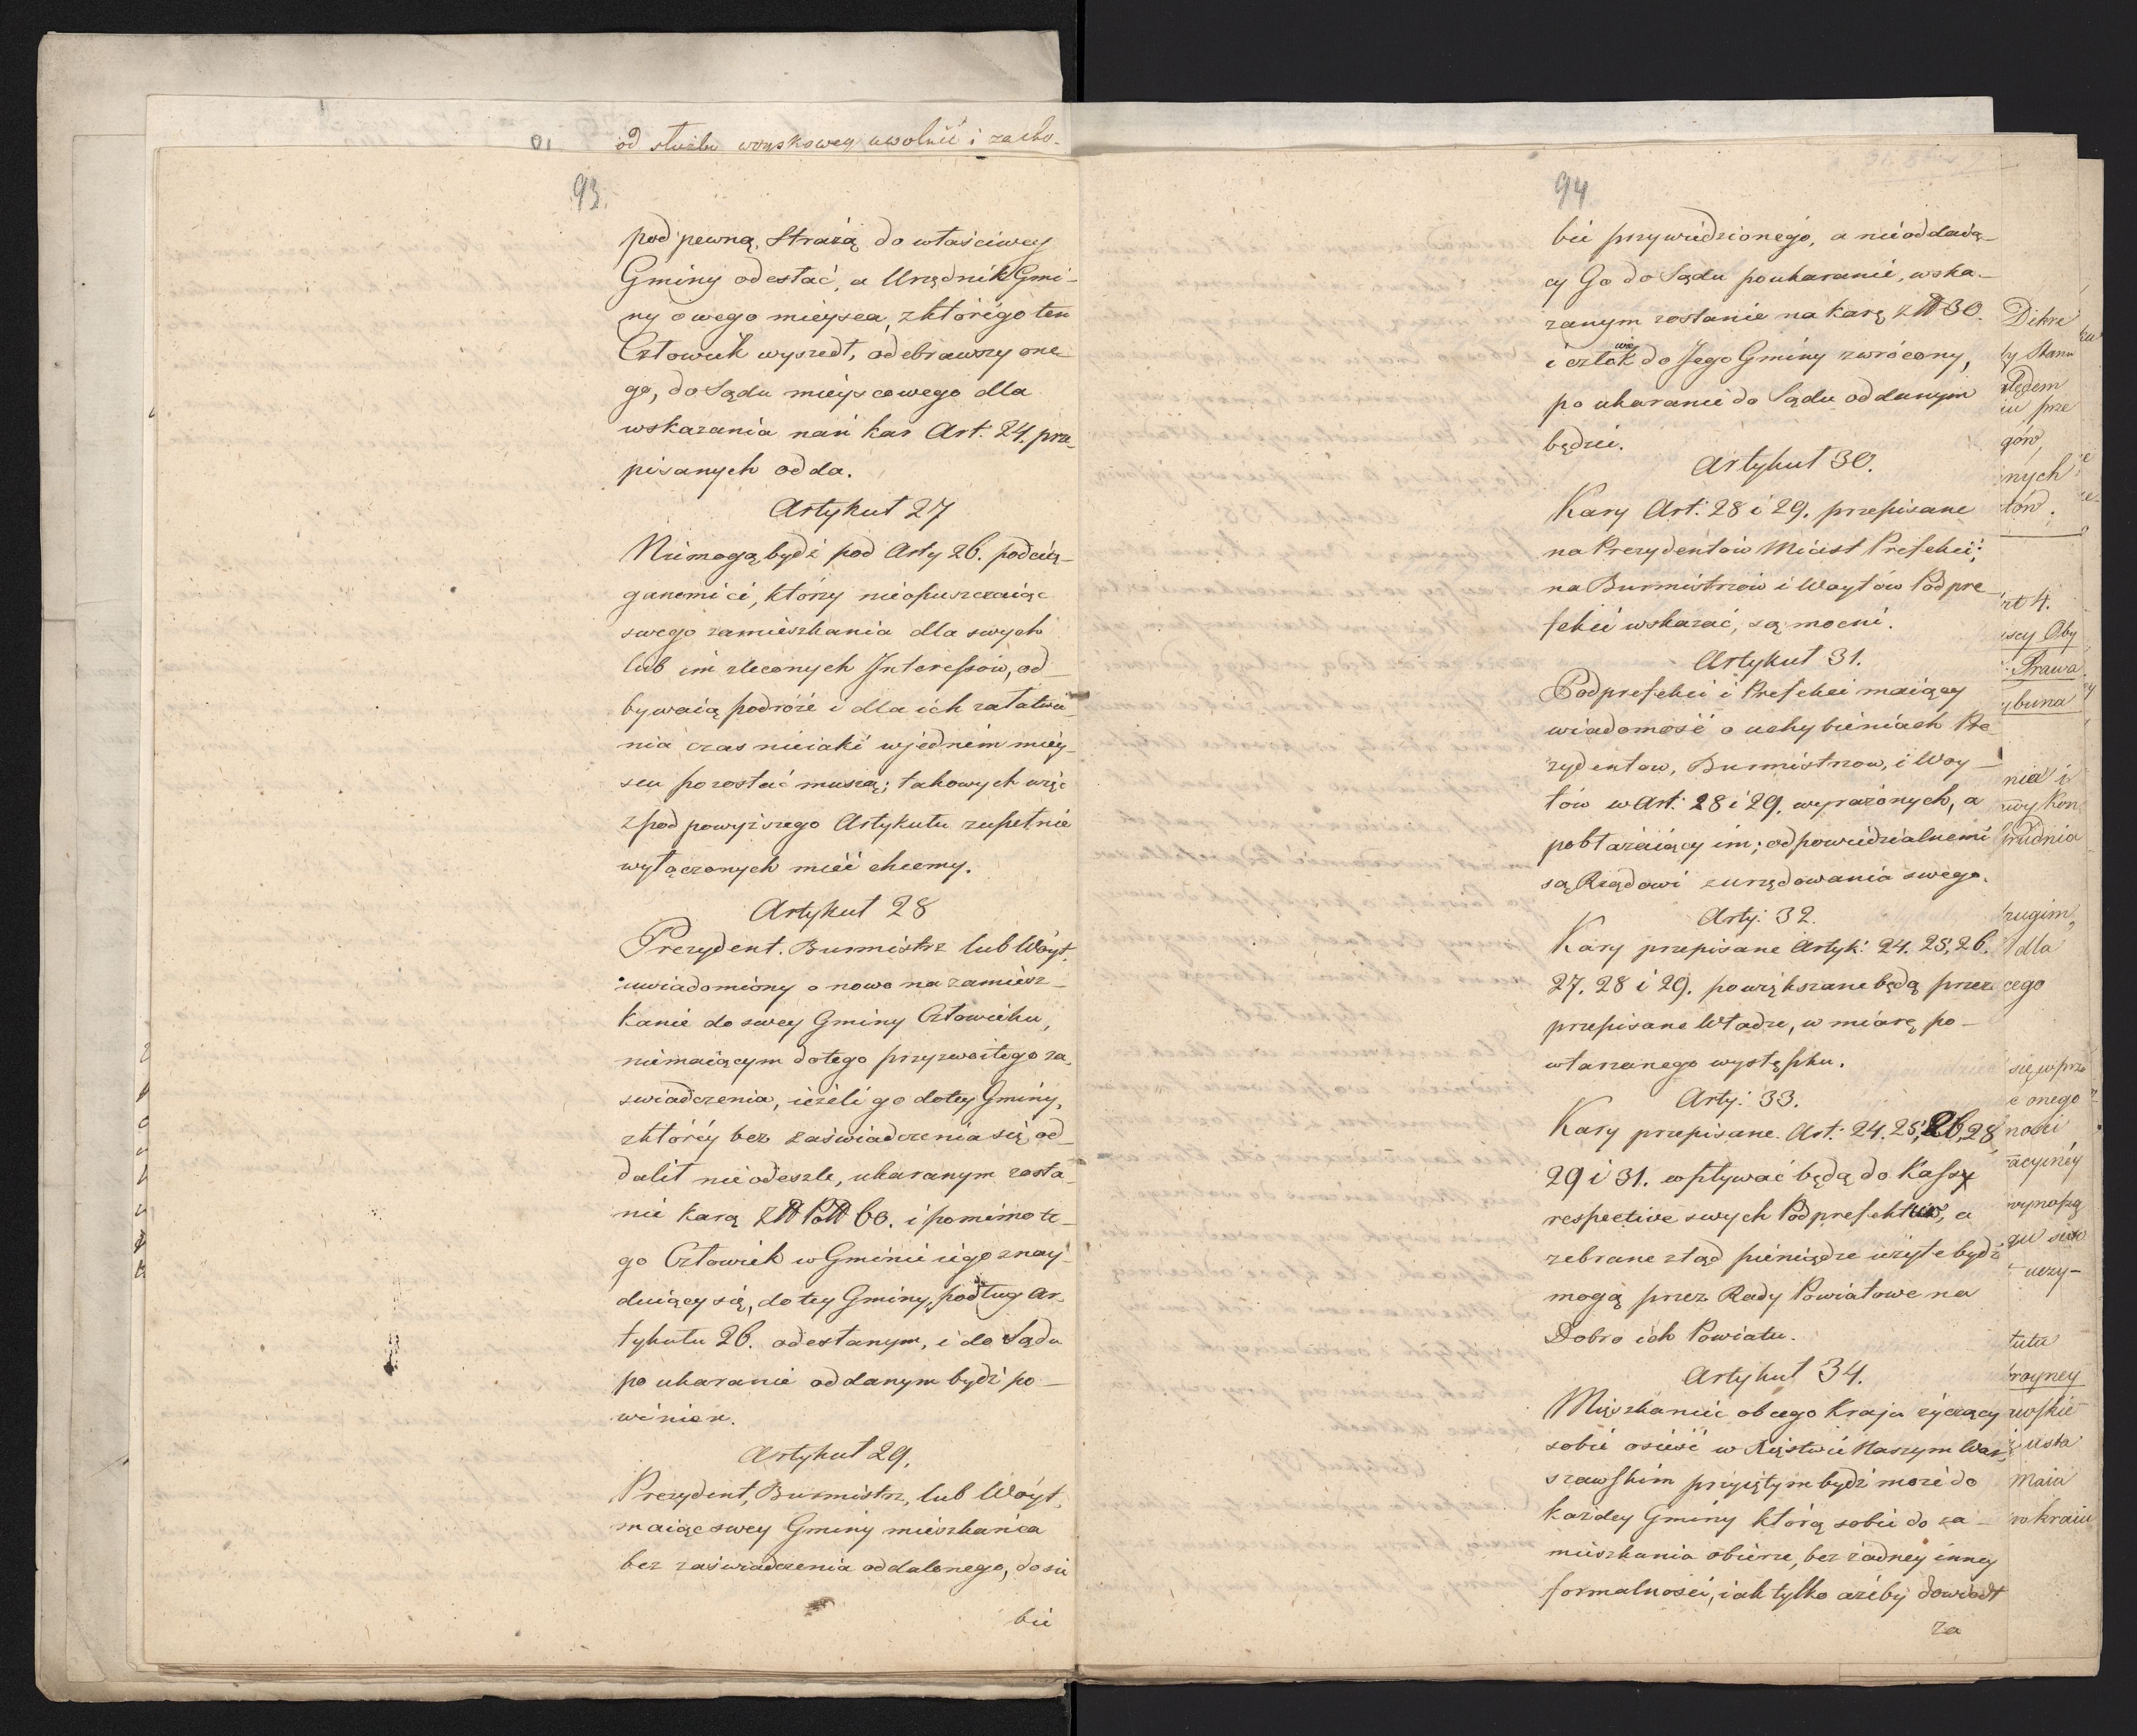 od służby woyskowey uwolnić i zacho-
93.
pod pewną Strażą do właściwey
Gminy odesłać, a Urzędnik Gmi-
ny owego mieysca, zktórégo ten
Człowiek wyszedł, odebrawszy one-
go, do Sądu mieyscowego dla
wskazania nań kar Art. 24. prze-
pisanych odda.
Artykuł 27
Niemogą bydź pod Arty 26. podcią-
ganemi ci, którzy nieopuszczaiąc
swego zamieszkania dla swych
lub im zleconych Interessów, od-
bywaią podróże i dla ich załatwie-
nia czas nieiaki wjedném miey-
scu pozostać muszą; takowych więc
zpod powyższego Artykułu zupełnie
wyłączonych mieć chcemy.
Artykuł 28
Prezydent. Burmistrz lub Wóyt,
uwiadomiony o nowo na zamiesz-
kanie do swey Gminy Człowieku,
niemaiącym dotego przyzwoitego za-
świadczenia, ieżeli go dotey Gminy,
zktóréy bez zaświadczenia się od-
dalił nieodeszle, ukaranym zosta-
nie karą Złł Poll 60. i pomimo te-
go Człowiek w Gminie iégo znay-
duiący się, do tey Gminy, podług Ar-
tykułu 26. odesłanym, i do Sądu
po ukaranie oddanym bydź po-
winien.
Artykuł 29.
Prezydent, Burmistrz, lub Wóyt,
maiąc swey Gminy mieszkańca
bez zaświadczenia oddalonego, do sie
bie
94
bie przywiedzionégo, a nieoddaią-
cy Go do Sądu poukaranie, wska-
zanym zostanie na karę złł 30.
i człowiek do Jego Gminy zwrócony,
po ukaranie do Sądu oddanym
będzie.
Artykuł 30.
Kary Art: 28 i 29. przepisane
na Prezydentów Miast Prefekci;
na Burmistrzów i Woytów Podpre-
fekci wskazać, są mocni.
Artykuł 31.
Podprefekci i Prefekci maiący
wiadomość o uchybieniach Pre-
zydentow, Burmistrzow, i Woy-
tów w Art: 28 i 29. wyrażonych, a
pobłażaiący im; odpowiedzialnemi
są Rządowi zurzędowania swego.
Arty: 32.
Kary przepisane Artyk: 24. 25, 26.
27. 28 i 29. powiększane będą przez
przepisane Władze, w miarę po-
wtarzanego występku.
Arty: 33.
Kary przepisane. Art: 24. 25, 26, 28,
29 i 31. wpływać będą do Kassy
respective swych Podprefektur, a
zebrane ztąd pieniądze użyte bydź
mogą przez Rady Powiatowe na
Dobro ich Powiatu.
Artykuł 34.
Mięszkaniec obcego Kraju życzący
sobie osieść w Xięstwie Naszym War-
szawskim przyiętym bydź może do
każdey Gminy którą sobie do za-
mieszkania obierze, bez żadney inney
formalności, iak tylko ażeby dowiódł
za
Dekre
by Stanu
ględem
iu prze
gów,
nych
tów.
rt 4.
wy Oby
Prawa
ybuna
nia i
Grudnia
drugim,
dla
cego
się w prze
e onego
ności
acyiney
wynoszą
uczy-
tuta
wskie
Usta
Maia
wo kraiu